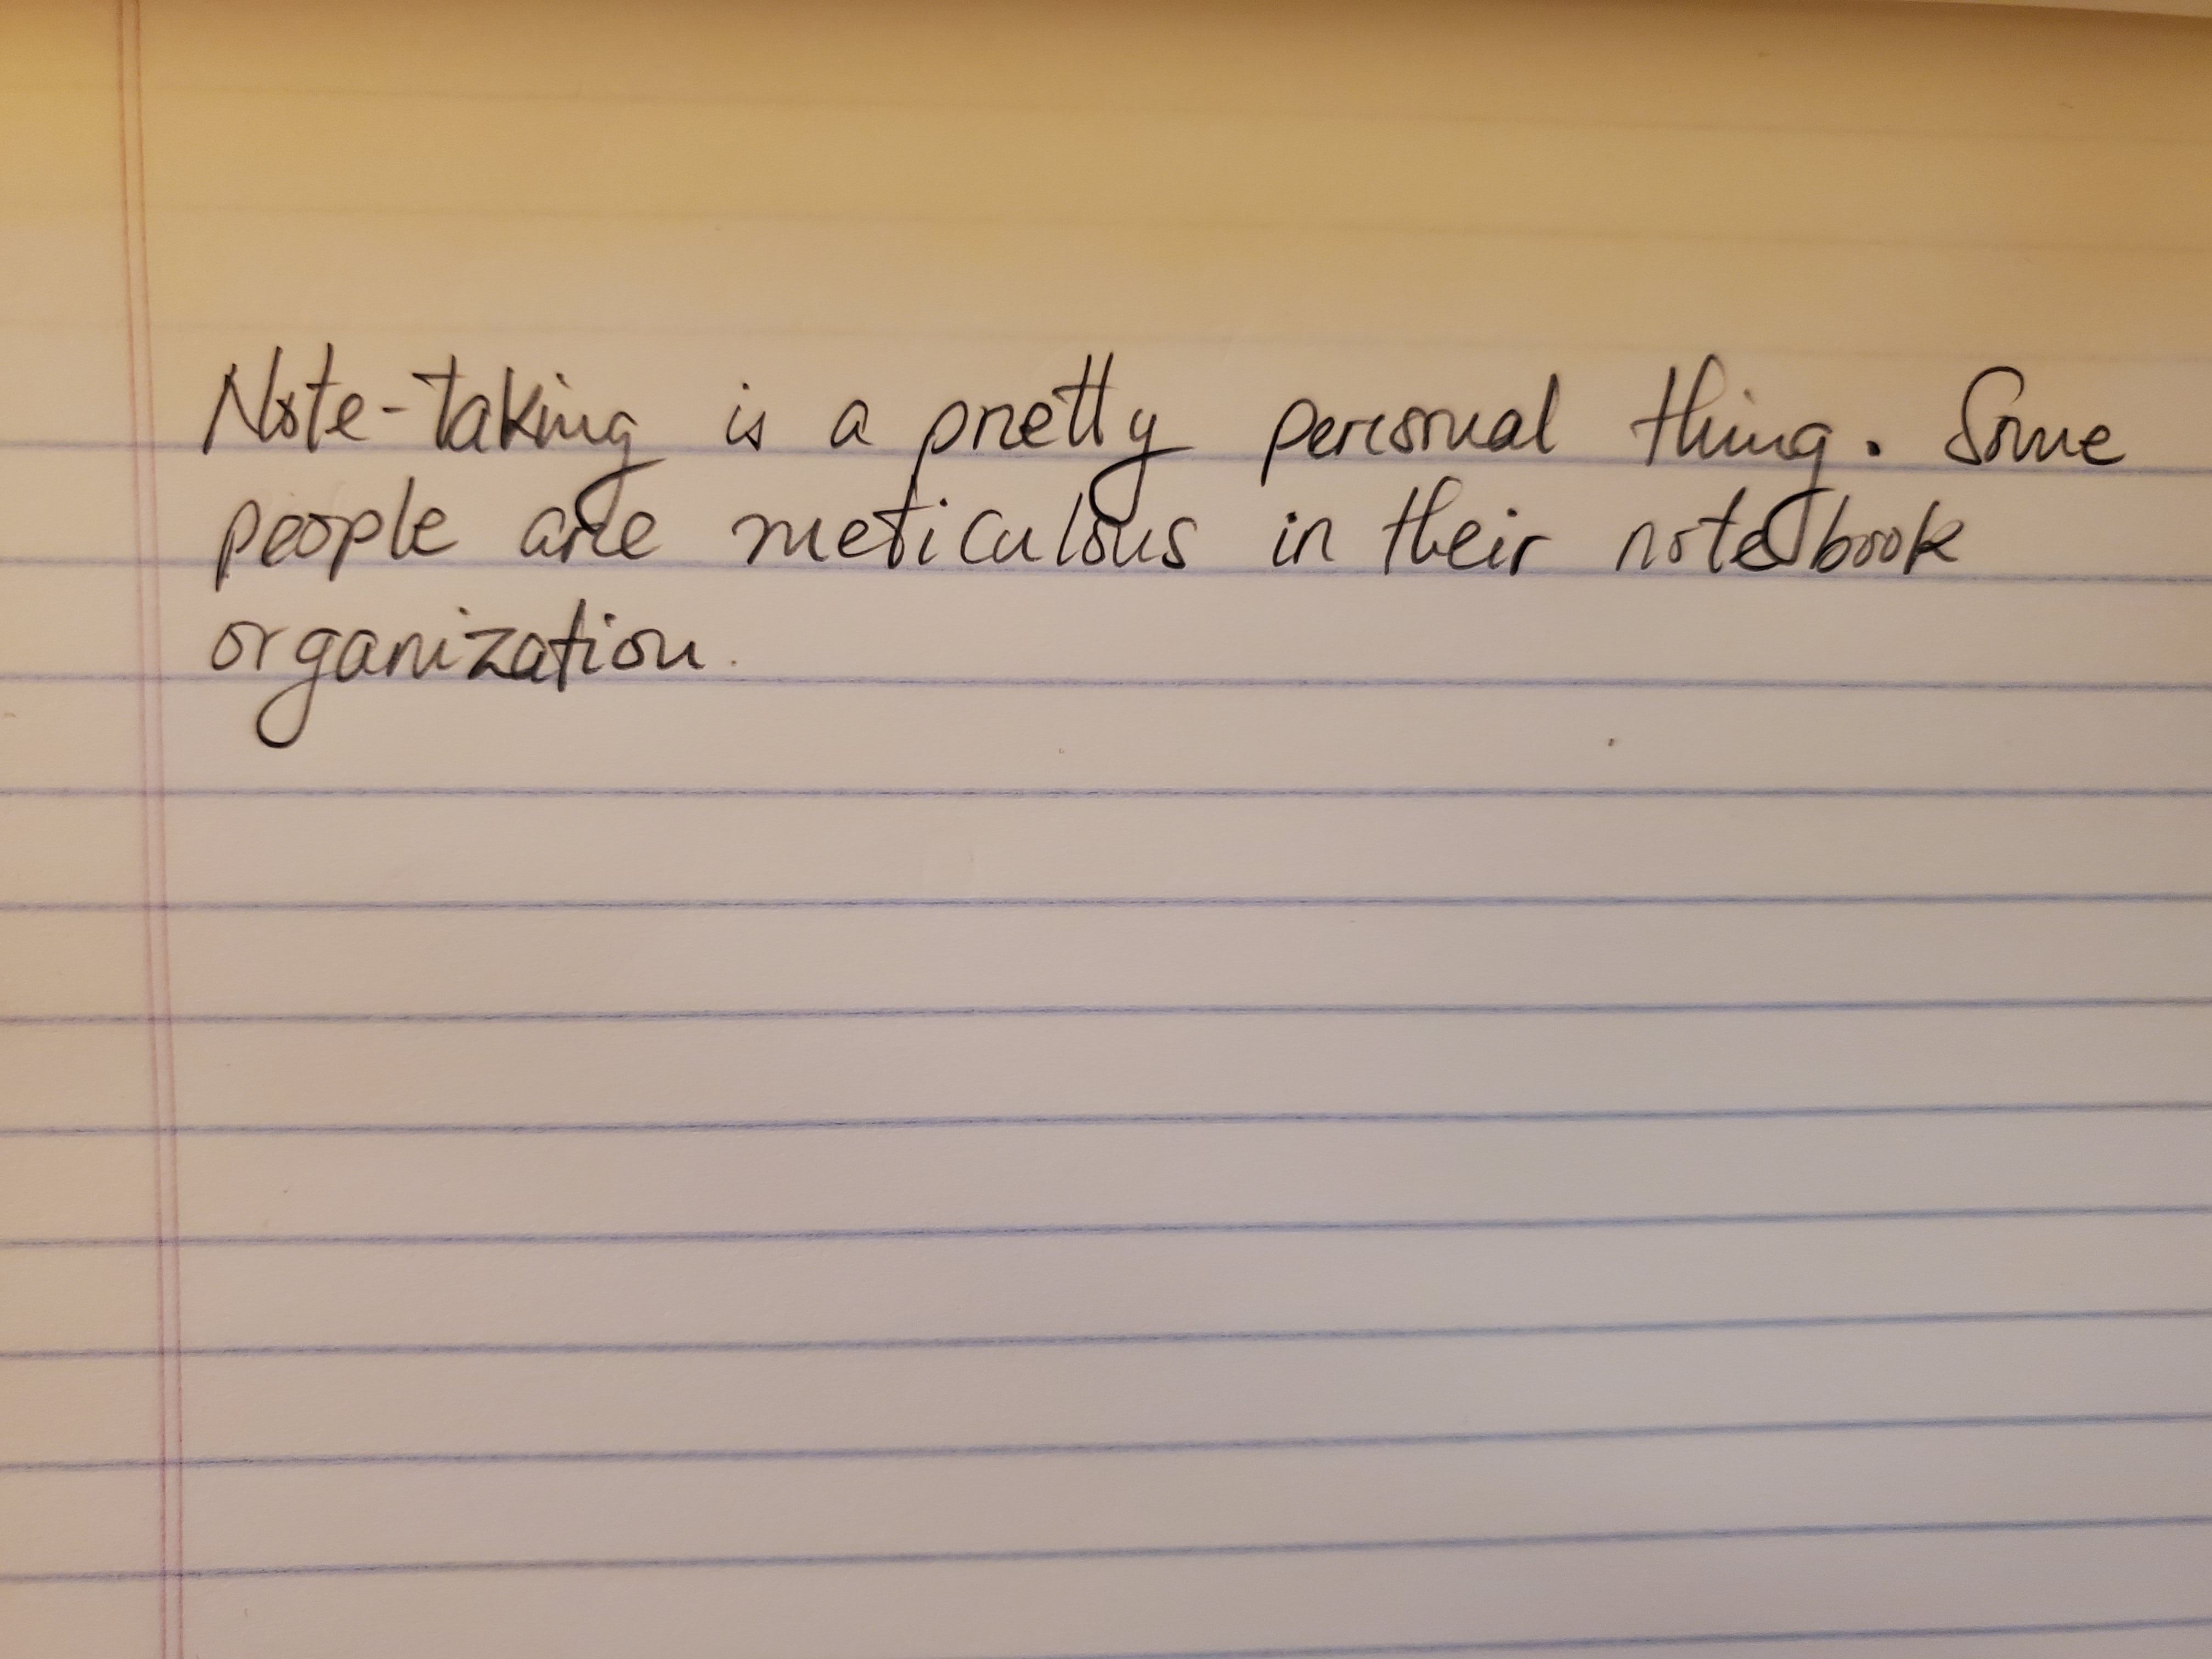 Note-taking is a pretty personal thing. Some
people are meticulous in their notebook
organization.